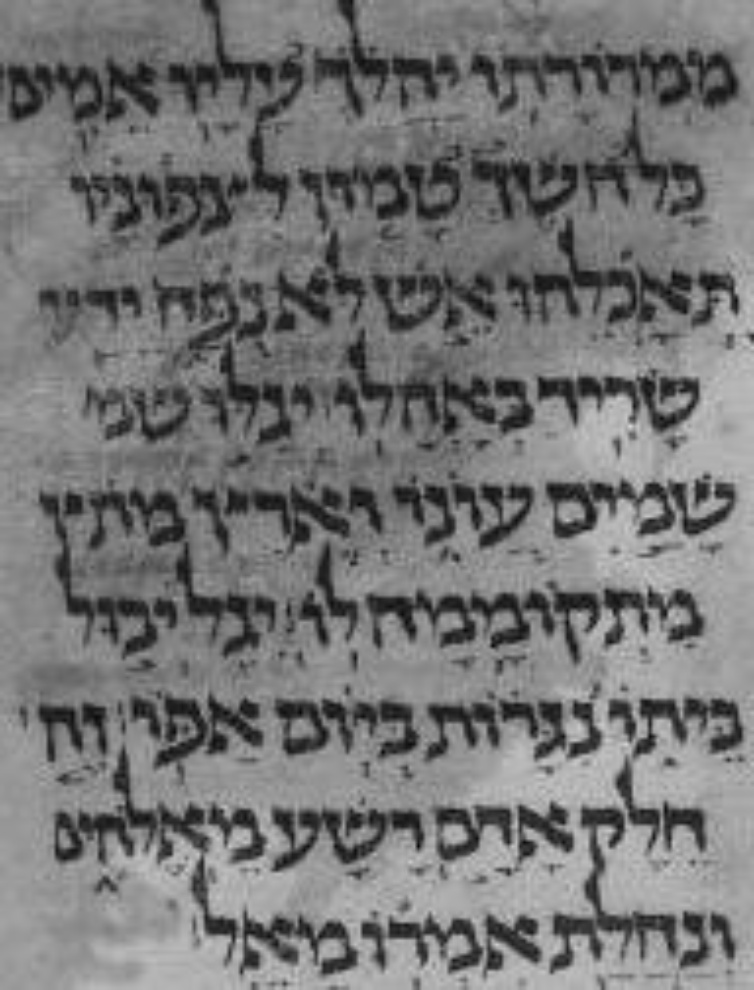 ממרורתו יהלך עליו אמים
כל חשך טמון לצפוניו
תאכלהו אש לא נפח ירע
שריד באהלו׃ יגלו שמ
שמים עונו וארץ מת
מתקוממה לו׃ יגל יבול
ביתו נגרות ביום אפו׃ זה
חלק אדם רשע מאלהים
ונחלת אמרו מאל׃